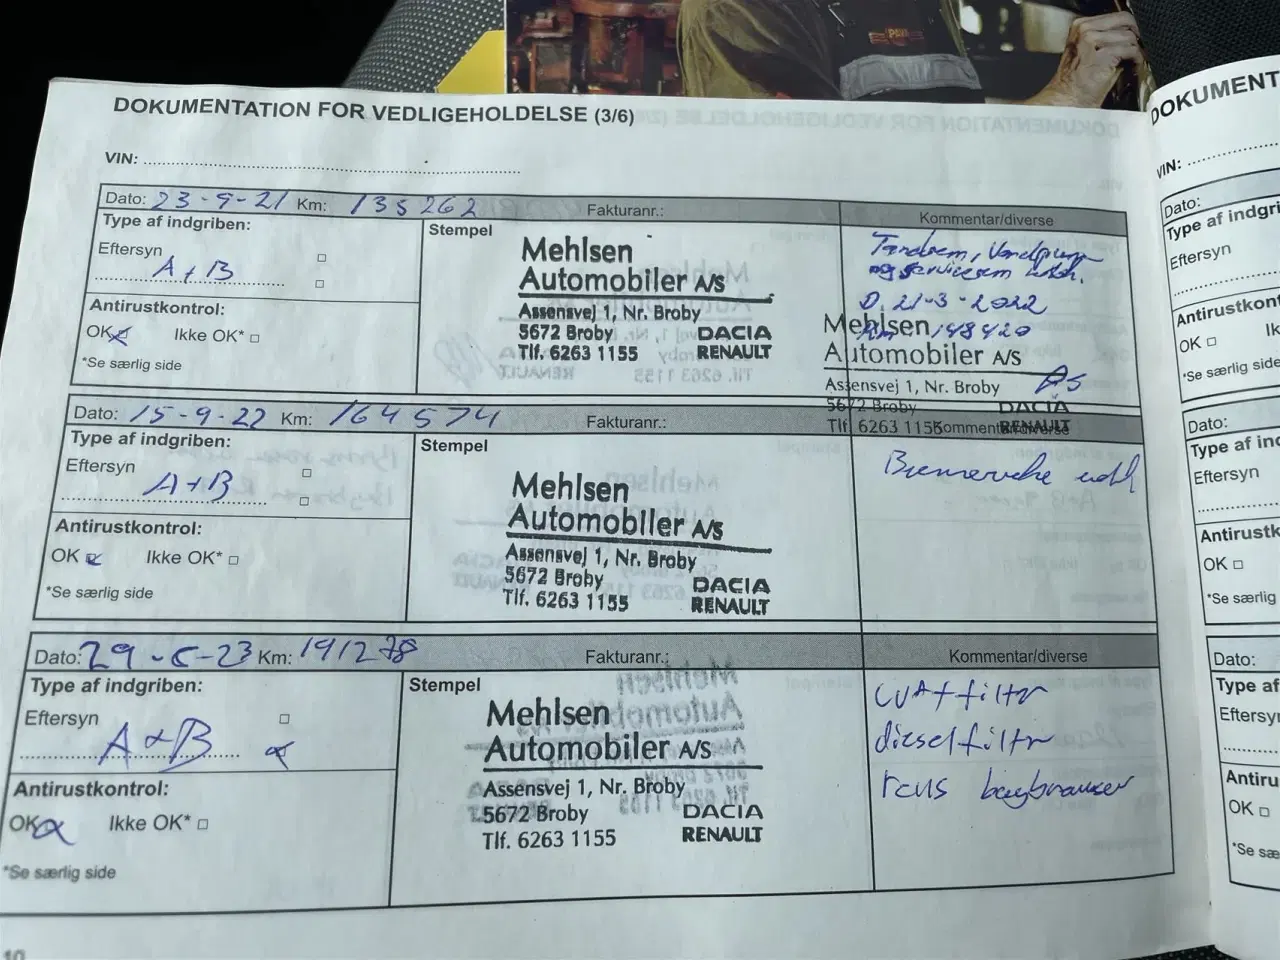 DOKUMENTATION FOR VEDLIGEHOLDELSE (3/6)
VIN:
Dato: 23-9-21 Km: 135262 Fakturanr.:
Kommentar/diverse
Type af indgriben:
Eftersyn
A+B
Antirustkontrol:
OK Ikke OK*
*Se særlig side
Stempel
Mehlsen
Automobiler A/S
Assensvej 1, Nr. Broby
5672 Broby DACIA
Tlf. 6263 1155 RENAULT
Tandrem, Vandpumpe
og servicerem udsk.
D. 21-3-2022
Km 148420
Mehlsen
Automobiler A/S
Assensvej 1, Nr. Broby
5672 Broby DACIA
Tlf. 6263 1155 RENAULT
Dato: 15-9-22 Km: 164574 Fakturanr.: Kommentar/diverse
Type af indgriben:
Eftersyn
A+B
Antirustkontrol:
OK Ikke OK*
*Se særlig side
Stempel
Mehlsen
Automobiler A/S
Assensvej 1, Nr. Broby
5672 Broby DACIA
Tlf. 6263 1155 RENAULT
Bremsevæske
Dato: 29-6-23 Km: 191278 Fakturanr.: Kommentar/diverse
Type af indgriben:
Eftersyn
A+B
Antirustkontrol:
OK Ikke OK*
*Se særlig side
Stempel
Mehlsen
Automobiler A/S
Assensvej 1, Nr. Broby
5672 Broby DACIA
Tlf. 6263 1155 RENAULT
luftfiltr
dieselfiltr
rens bagbremser
10
DOKUMENT
VIN:
Dato:
Type af indgri
Eftersyn
Antirustkont
OK
*Se særlig
Dato:
Type af ind
Eftersyn
Antirustk
OK
*Se særlig
Dato:
Type af
Eftersy
Antiru
OK
*Se sæ